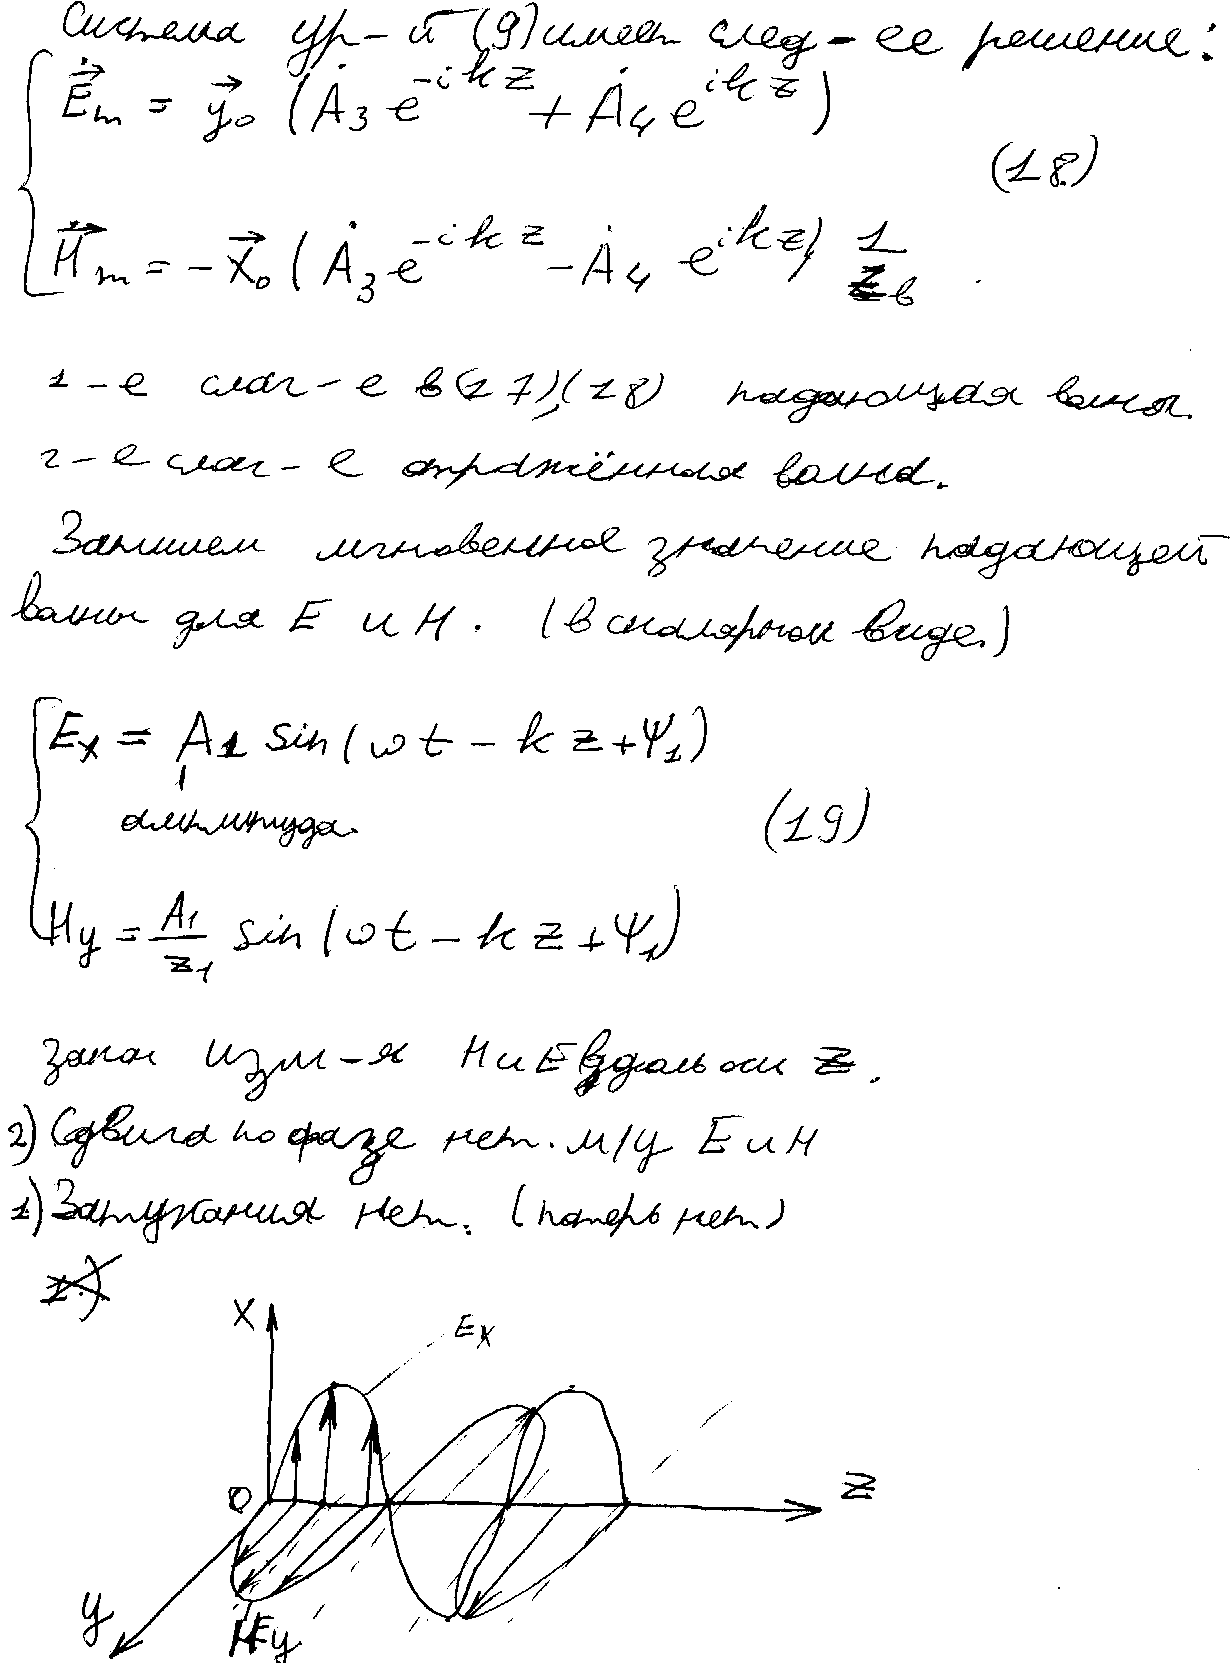 Система ур-й (9) имеет след-ее решение:
$\dot{\vec{E}}_m = \vec{y}_0 (\dot{A}_3 e^{-ikz} + \dot{A}_4 e^{ikz})$
(18)
$\dot{\vec{H}}_m = -\vec{x}_0 (\dot{A}_3 e^{-ikz} - \dot{A}_4 e^{ikz}) \frac{1}{z_в}$
1-е слаг-е в (17),(18) падающая волна.
2-е слаг-е отражённая волна.
Запишем мгновенное значение падающей
волны для E и H. (в скалярном виде.)
$E_x = A_1 \sin(\omega t - kz + \Psi_1)$
амплитуда.
(19)
$H_y = \frac{A_1}{z_1} \sin(\omega t - kz + \Psi_1)$
закон изм-я H и E вдоль оси z.
2) Сдвига по фазе нет. м/у E и H
1) Затухания нет. (потерь нет)
X
E_x
O
z
y
H_y